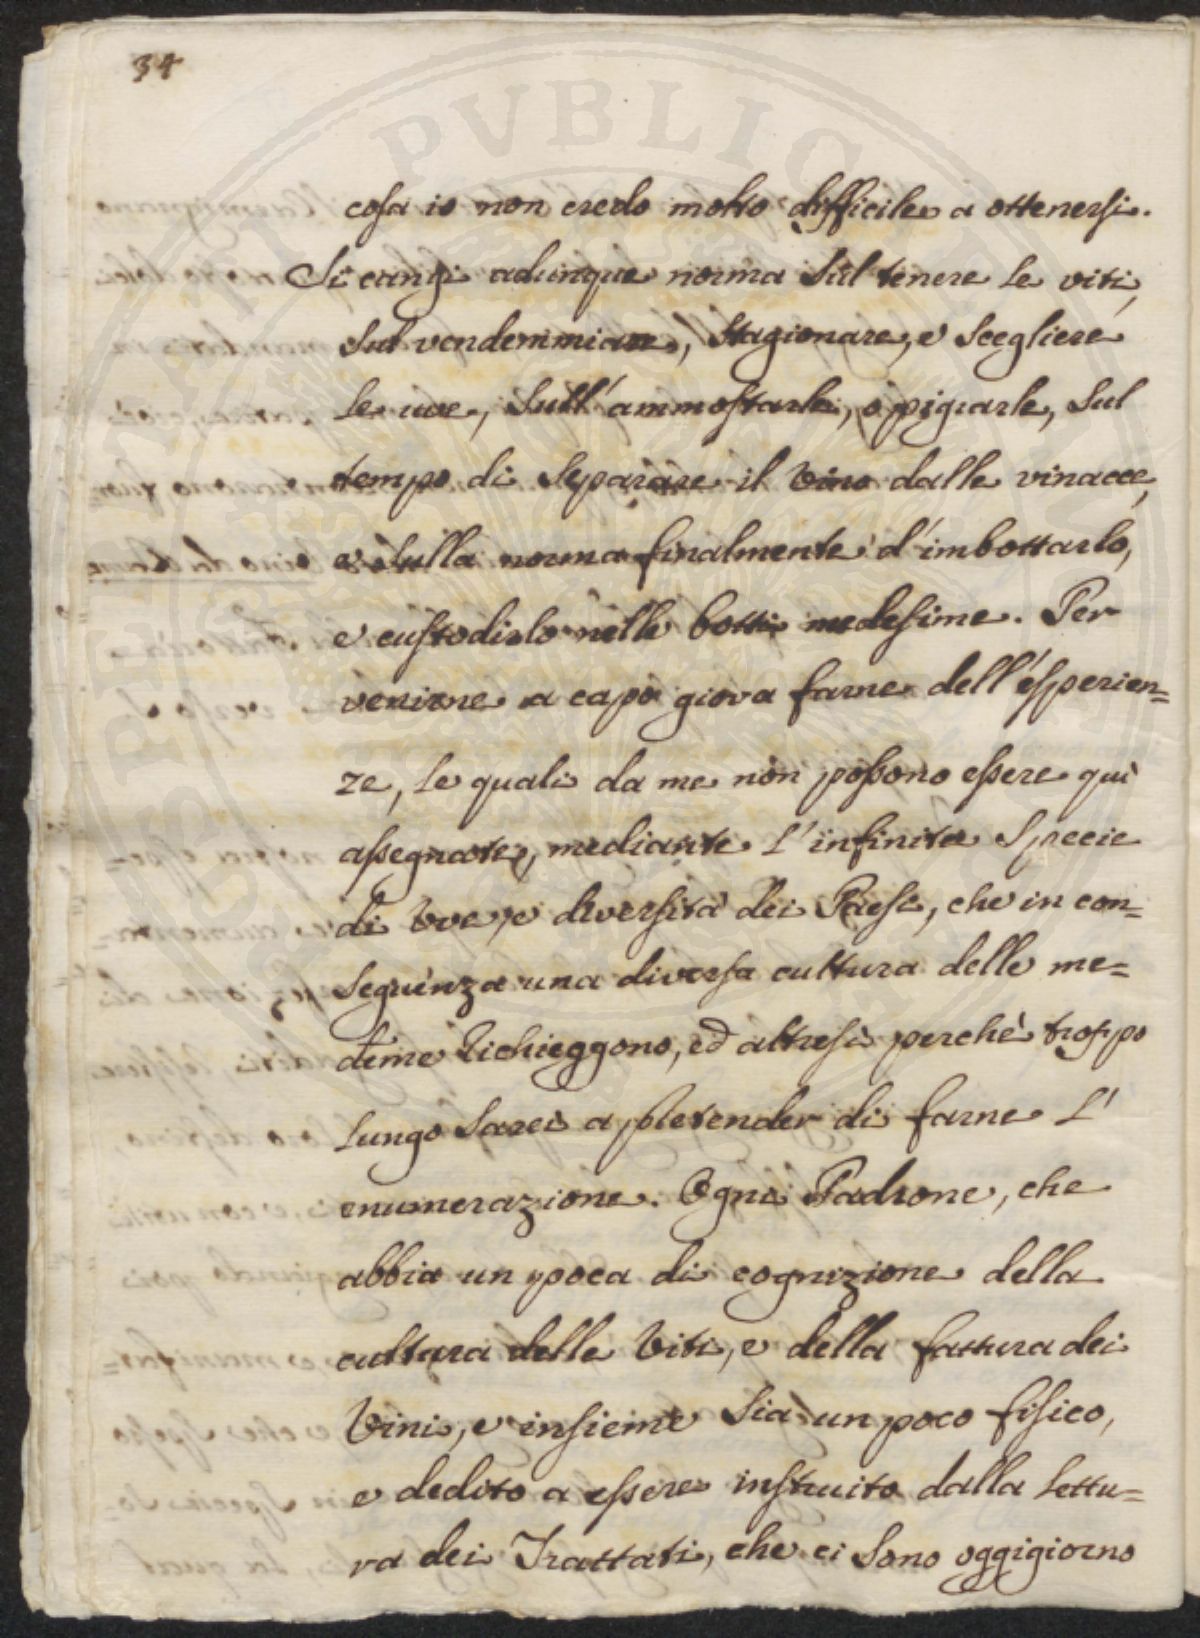 34
cosa io non credo molto difficile a ottenersi.
Si cangi adunque norma sul tenere le viti,
sul vendemmiare, stagionare, e scegliere
le uve, sull'ammostarle, o pigiarle, sul
tempo di separare il vino dalle vinacce,
e sulla norma finalmente d'imbottarlo,
e custodirlo nelle botti medesime. Per
venirne a capo giova farne dell'esperien=
ze, le quali da me non possono essere quì
assegnate, mediante l'infinite specie
di Uve, e diversità dei Paesi, che in con=
seguenza una diversa cultura delle me=
deme richieggono, ed altresì perchè troppo
lungo sarei a pretender di farne l'
enumerazione. Ogni Padrone, che
abbia un poca di cognizione della
cultura delle Viti, e della fattura dei
Vini, e insieme sia un poco fisico,
e dedito a essere instruito dalla lettu=
ra dei Trattati, che ci sono oggigiorno